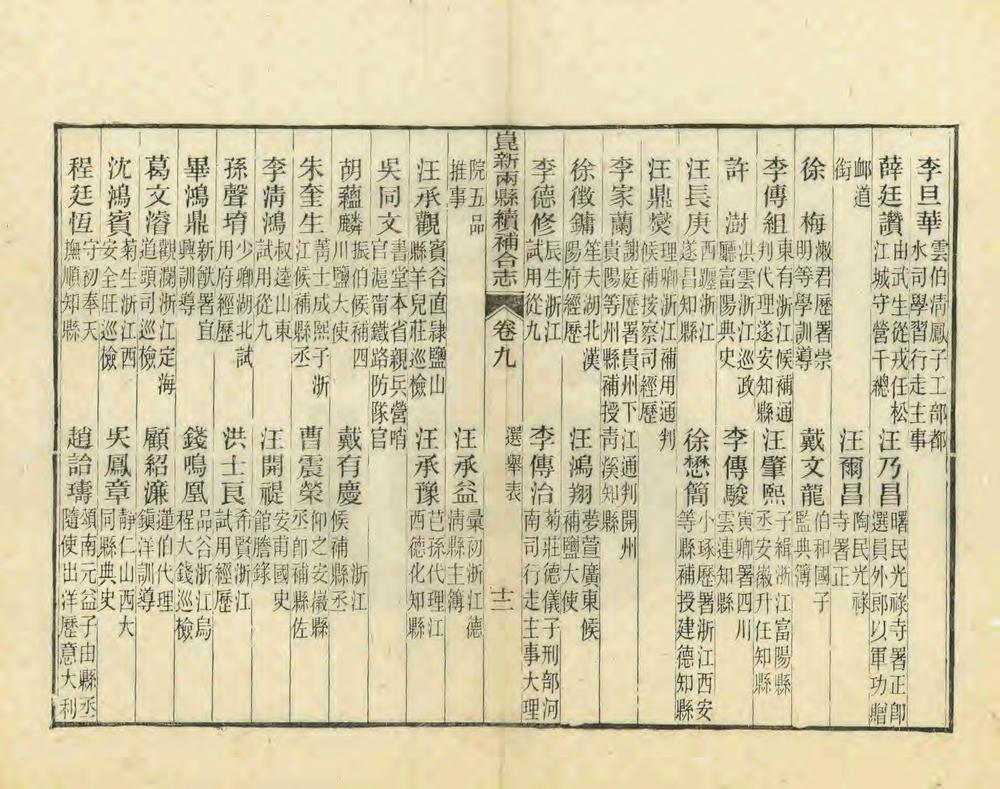 李旦華 雲伯淸鳳子工部都水司學習行走主事
薛廷讚 由武生從戎任松江城守營千總 汪乃昌 曙民光祿寺署正卽選員外郎以軍功贈
卹道銜 汪爾昌 陶民光祿寺署正
徐梅 澂君歷署崇明等學訓導 戴文龍 伯和國子監典簿
李傳組 東有浙江候補通判代理遂安知縣 汪肇熙 子緝浙江富陽縣丞安徽升任知縣
許澍 洪雲浙江巡政廳富陽典史 李傳駿 寅卿署四川雲連知縣
汪長庚 西躔浙江遂昌知縣 徐懋簡 小琢歷署浙江西安等縣補授建德知縣
汪鼎爕 理卿浙江補用通判候補按察司經歷
李家蘭 謝庭歷署貴州下江通判開州貴陽等州縣補授靑溪知縣
徐徵鏞 笙夫湖北漢陽府經歷 汪鴻翔 夢萱廣東候補鹽大使
李德修 辰生浙江試用從九 李傳治 菊莊德儀子刑部河南司行走主事大理
崑新兩縣續補合志 卷九 選舉表 十二
院五品推事 汪承益 彙初浙江德淸縣主簿
汪承觀 賓谷直隷鹽山縣羊兒莊巡檢 汪承豫 芑孫代理江西德化知縣
吳同文 書堂本省親兵營哨官滬甯鐵路防隊官
胡蘊麟 振伯候補四川鹽大使 戴有慶 浙江候補縣丞
朱奎生 菁士成熙子浙江候補縣丞 曹震榮 仰之安徽縣丞卽補縣佐
李淸鴻 叔逵山東試用從九 汪開禔 安甫國史館謄錄
孫聲堉 少卿湖北試用府經歷 洪士良 希賢浙江試用經歷
畢鴻鼎 新猷署宜興訓導 錢鳴凰 品谷浙江烏程大錢巡檢
葛文濬 觀瀾浙江定海道頭司巡檢 顧紹濂 蓮伯代理鎭洋訓導
沈鴻賓 菊生浙江西安全旺巡檢 吳鳳章 靜仁山西大同縣典史
程廷恆 守初奉天撫順知縣 趙詒璹 頌南元益子由縣丞隨使出洋歷意大利